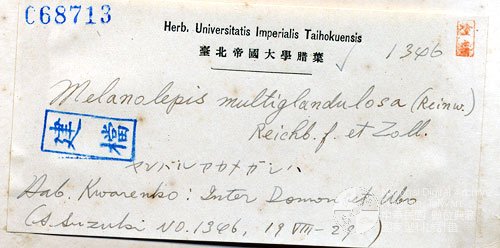 068713
Herb. Universitatis Imperialis Taihokuensis
臺北帝國大學腊葉
1346
Melanolepis multiglandulosa (Reinw.)
Reichb. f. et Zoll.
建檔
ヤンバルアカメガシハ
Hab. Kwarenko: Inter Domon et Ubo
(S. Suzuki NO. 1346, 19 VIII - 29)